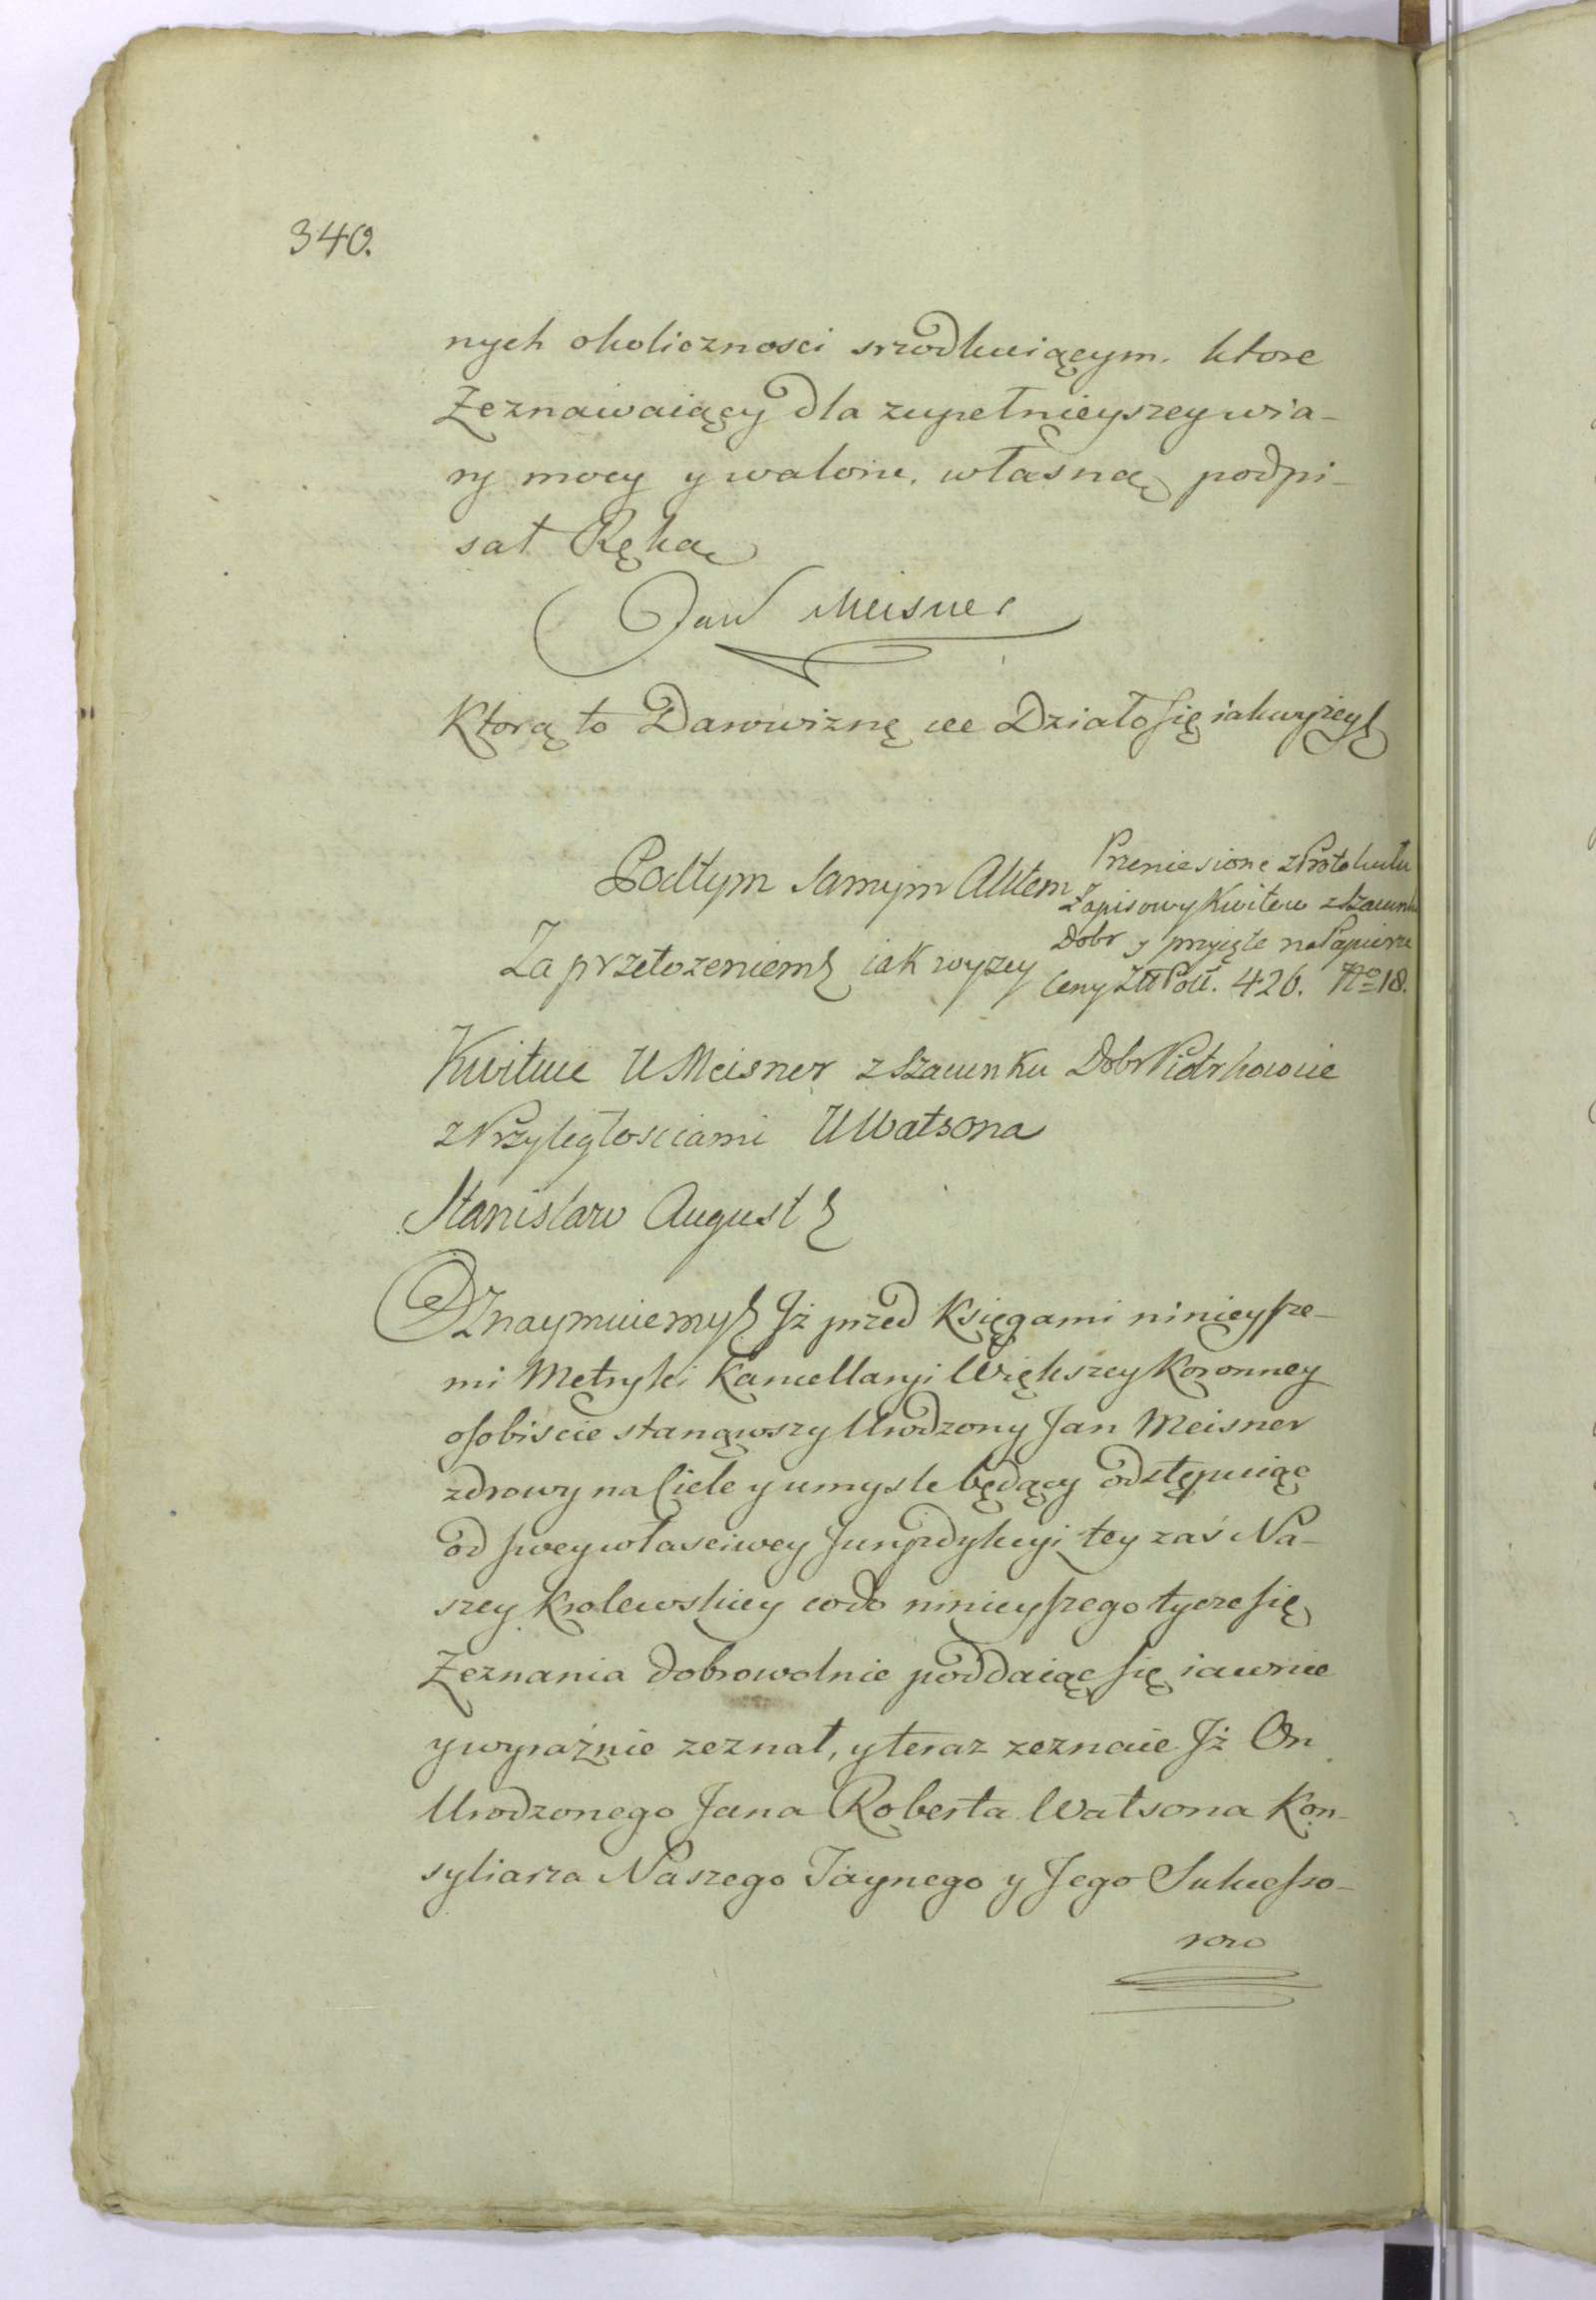 340.
nych okolicznosci srzodkuiącym. ktore
Zeznawaiący dla zupełnieyszey wia-
ry mocy y waloru, własną podpi-
sał Ręką
Jan Meisner
Ktorą to Darowiznę etc Działo się iak wyzey
Pod tym samym Aktem
Za przełożeniem iak wyzey
Przeniesione z Protokułu
Zapisowy Kwitow z szacunku
Dobr y przyięte na Papierze
Ceny Złł Poll. 426. No 18.
Kwituie U Meisner z szacunku Dobr Piotrkowie
z Przyległosciami U Watsona
Stanisław August
Oznaymuiemy Iż przed Księgami ninieysze-
mi Metryki Kancellaryi Większey Koronney
osobiscie stanąwszy Urodzony Jan Meisner
zdrowy na Ciele y umysle będący odstępuiąc
od swey własciwey Juryzdykcyi tey zaś Na-
szey Krolewskiey co do ninieyszego tycze się
Zeznania dobrowolnie poddaiąc się iawnie
y wyraźnie zeznał, y teraz zeznaie Iż On
Urodzonego Jana Roberta Watsona Kon-
syliarza Naszego Taynego y Jego Sukcesso-
row